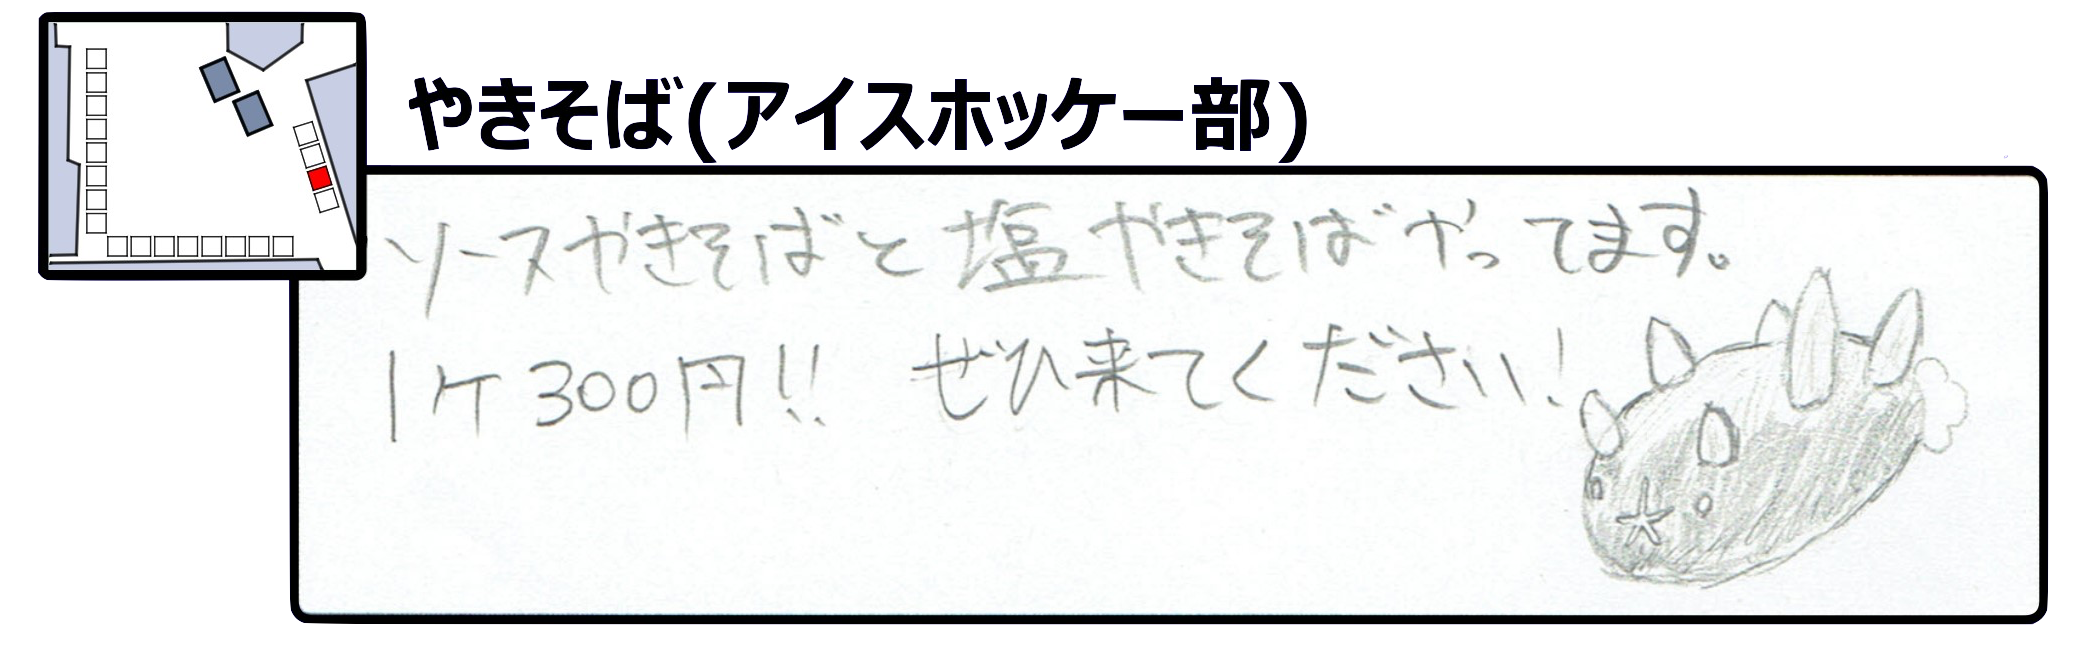 やきそば(アイスホッケー部)
ソースやきそばと塩やきそばやってます。
1ケ300円!! ぜひ来てください!